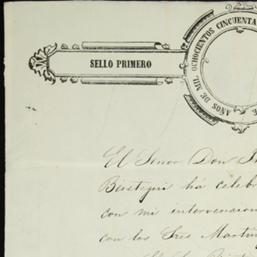 SELLO PRIMERO
AÑOS DE MIL OCHOCIENTOS CINCUENTA
El Señor Don
ha celeb
con mi intervencion
con los Tres Martin